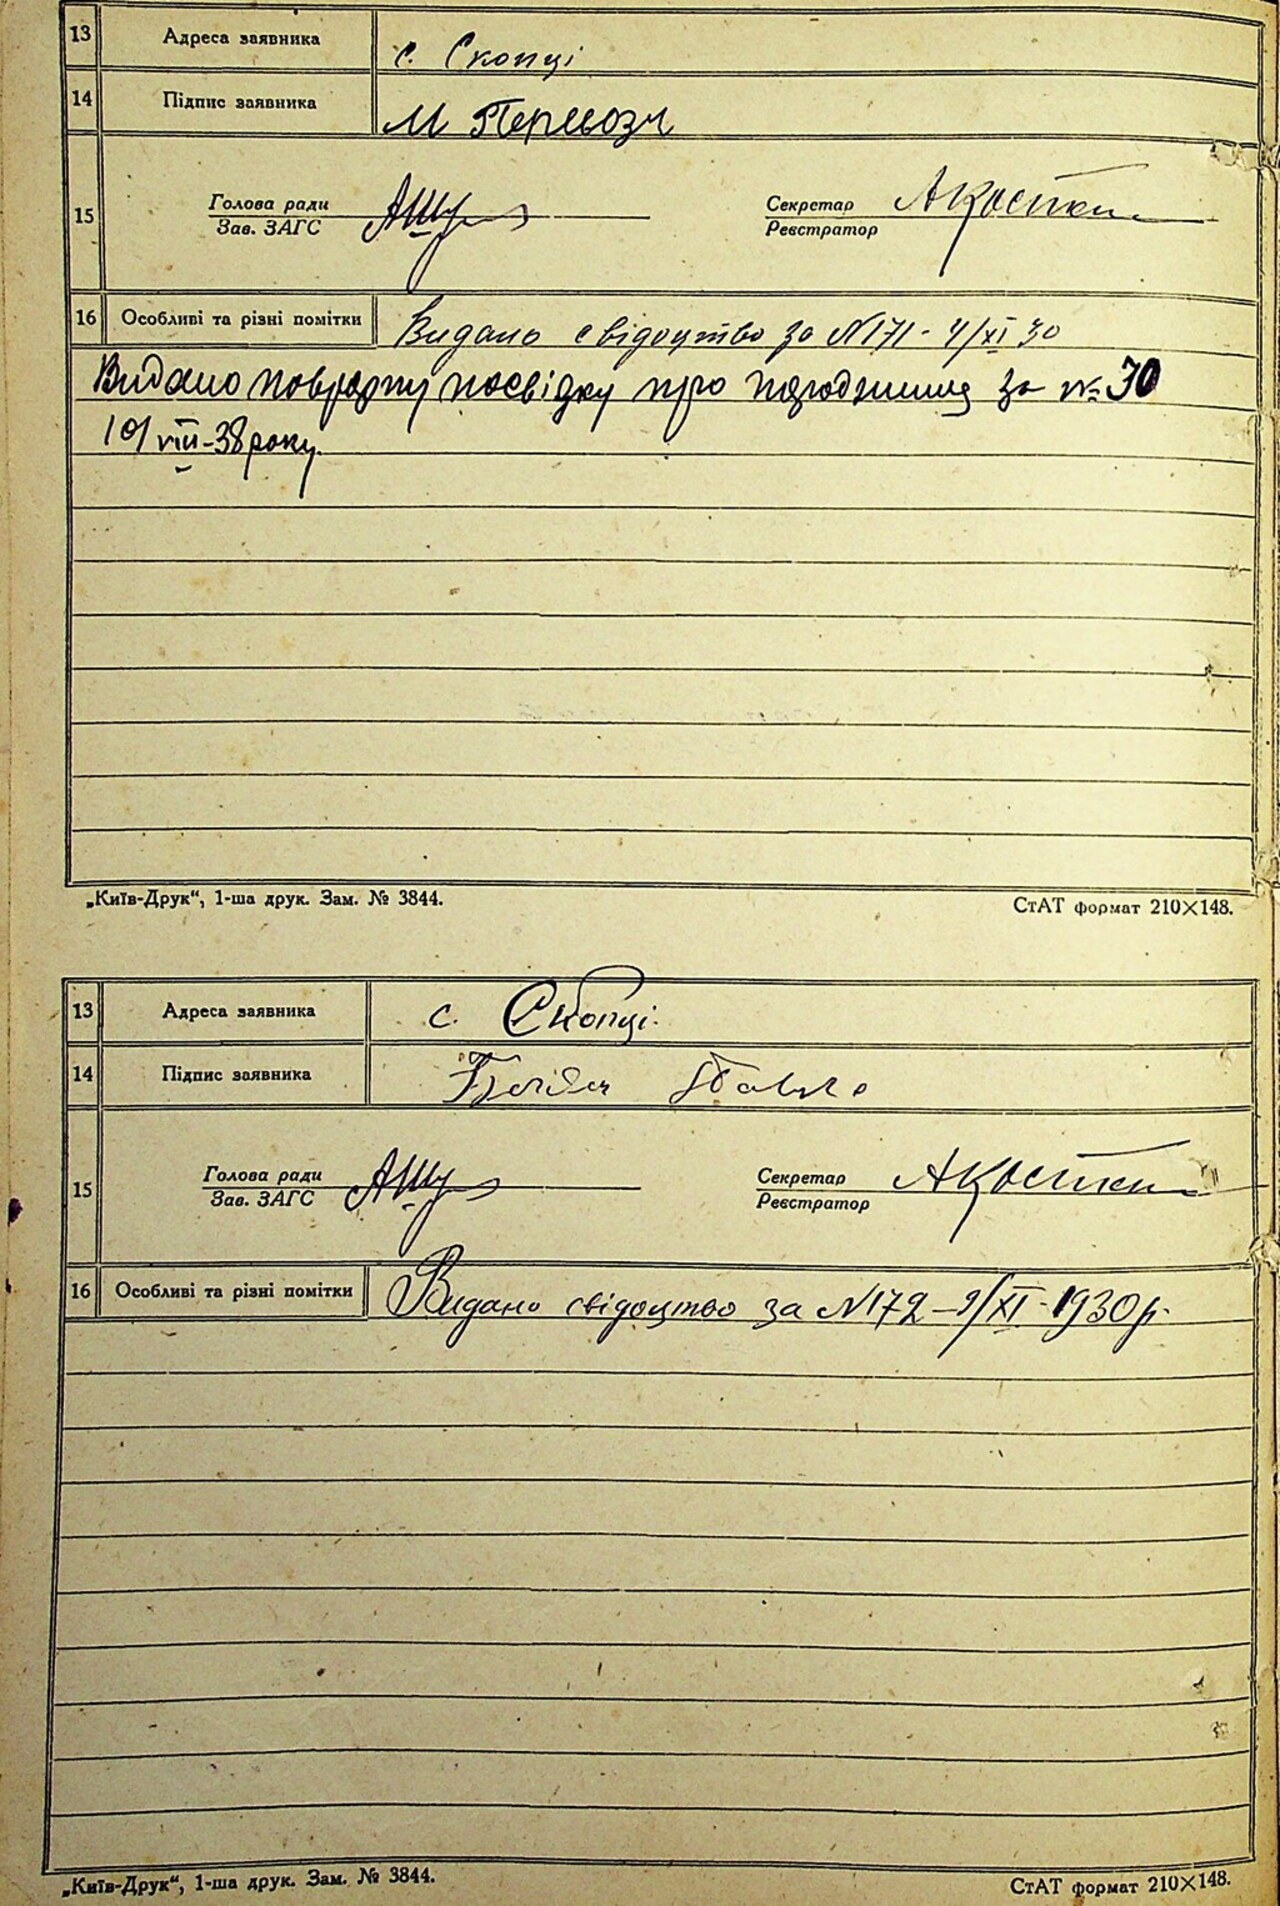 13 Адреса заявника с. Скопці
14 Підпис заявника М Перевозч
15 Голова ради Секретар
Зав. ЗАГС Реєстратор
16 Особливі та різні помітки Видано свідоцтво за N171 - 4/XI 30
Видано повторну посвідку про народження за № 30
19/VIII-38 року.
„Київ-Друк“, 1-ша друк. Зам. № 3844. СтАТ формат 210×148.
13 Адреса заявника с. Скопці.
14 Підпис заявника
15 Голова ради Секретар
Зав. ЗАГС Реєстратор
16 Особливі та різні помітки Видано свідоцтво за N172 - 9/XI - 1930 р.
„Київ-Друк“, 1-ша друк. Зам. № 3844. СтАТ формат 210×148.